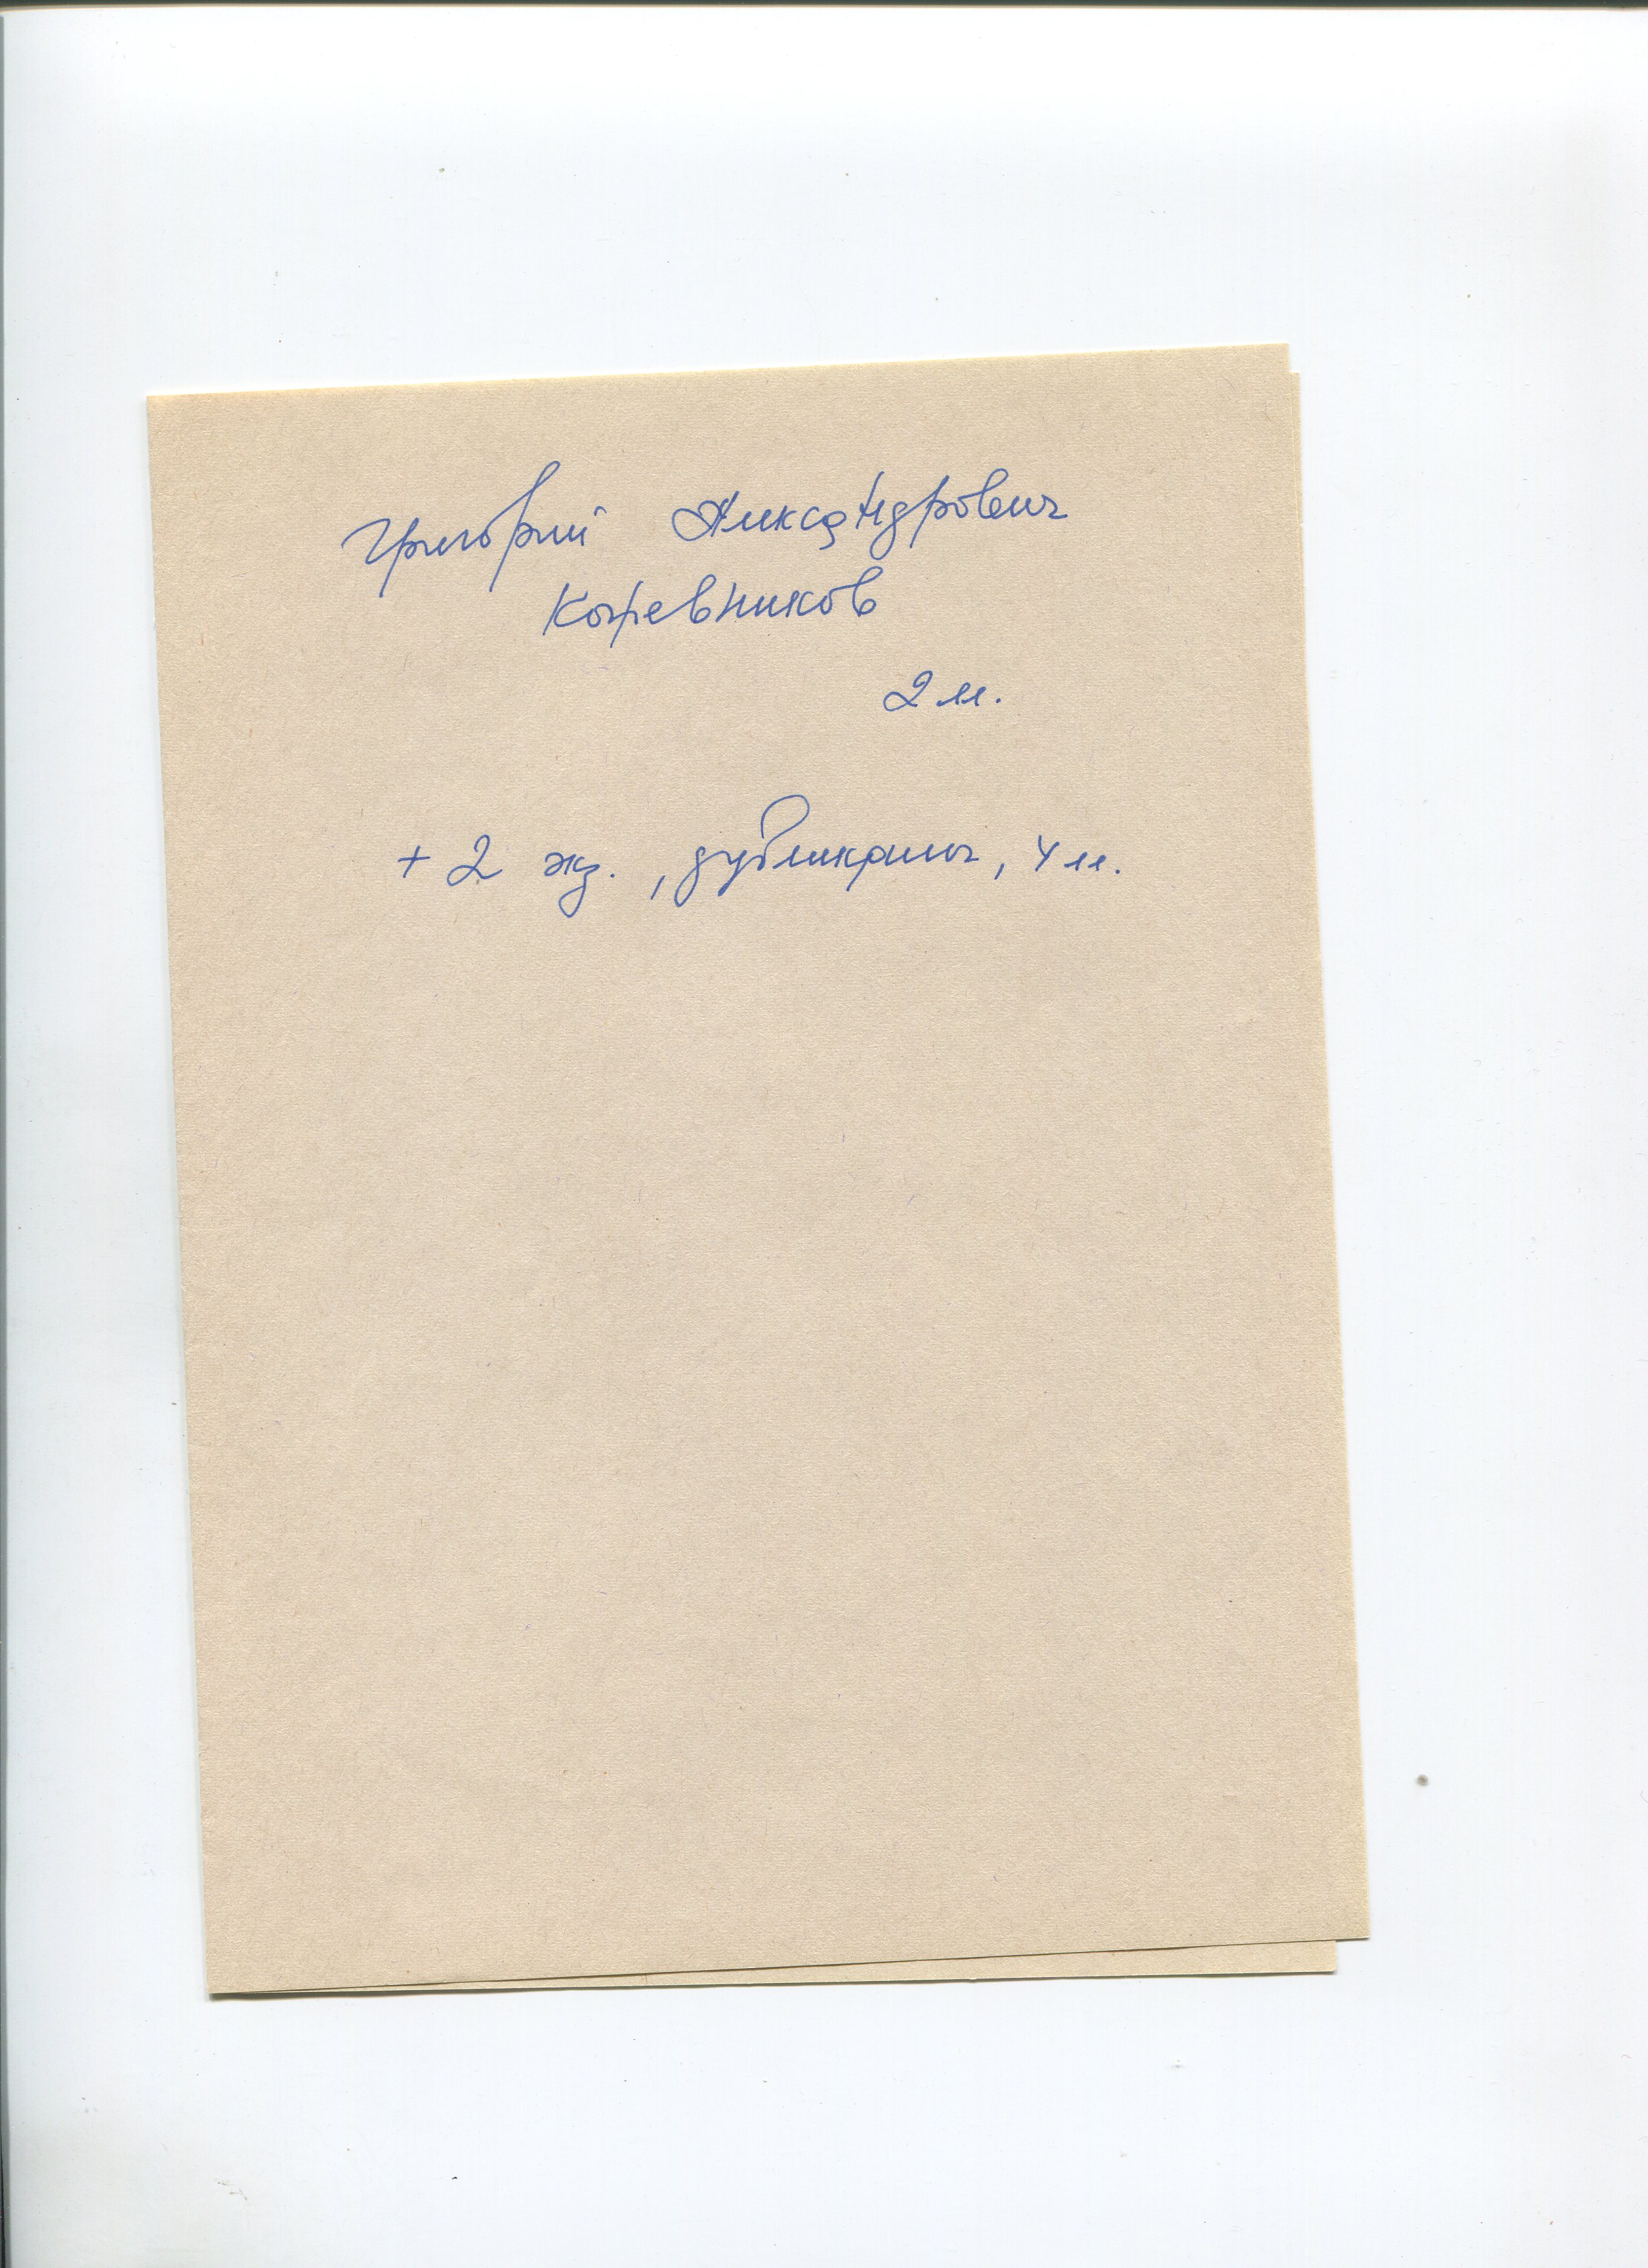 Григорий Александрович
Кожевников
2 лл.
+ 2 экз., дубликаты, 4 лл.